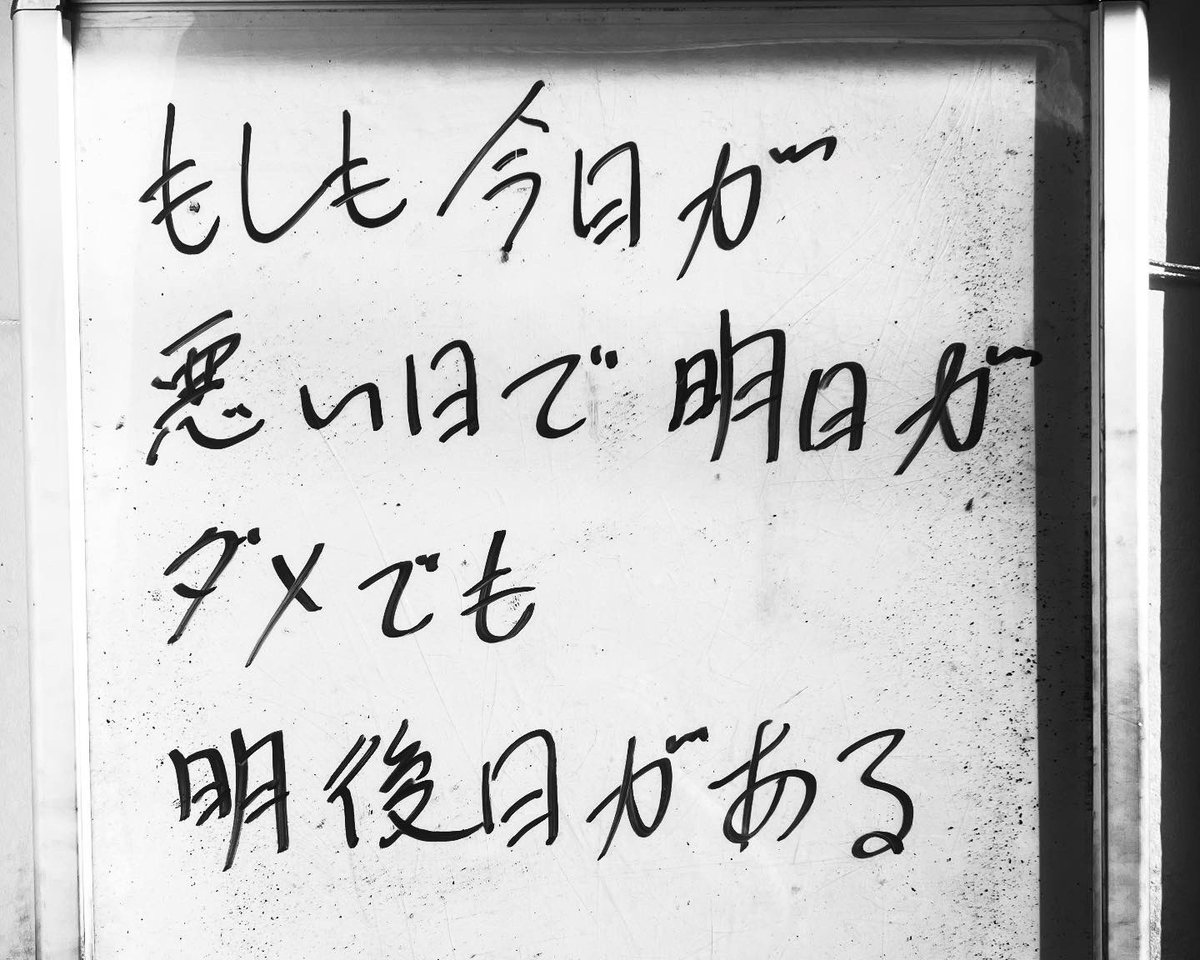 もしも今日が
悪い日で明日が
ダメでも
明後日がある